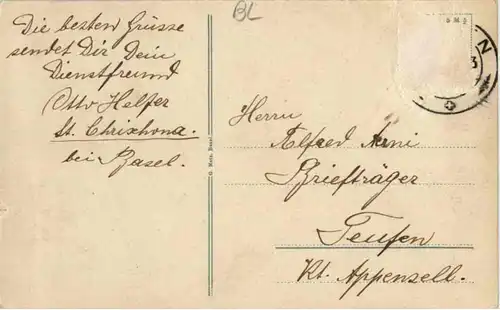 BL
Die besten Grüsse
sendet Dir Dein
Dienstfreund
Otto Helfer
St. Chrixhona.
bei Basel.
Herrn
Alfred Arni
Briefträger
Teufen
Kt. Appenzell.